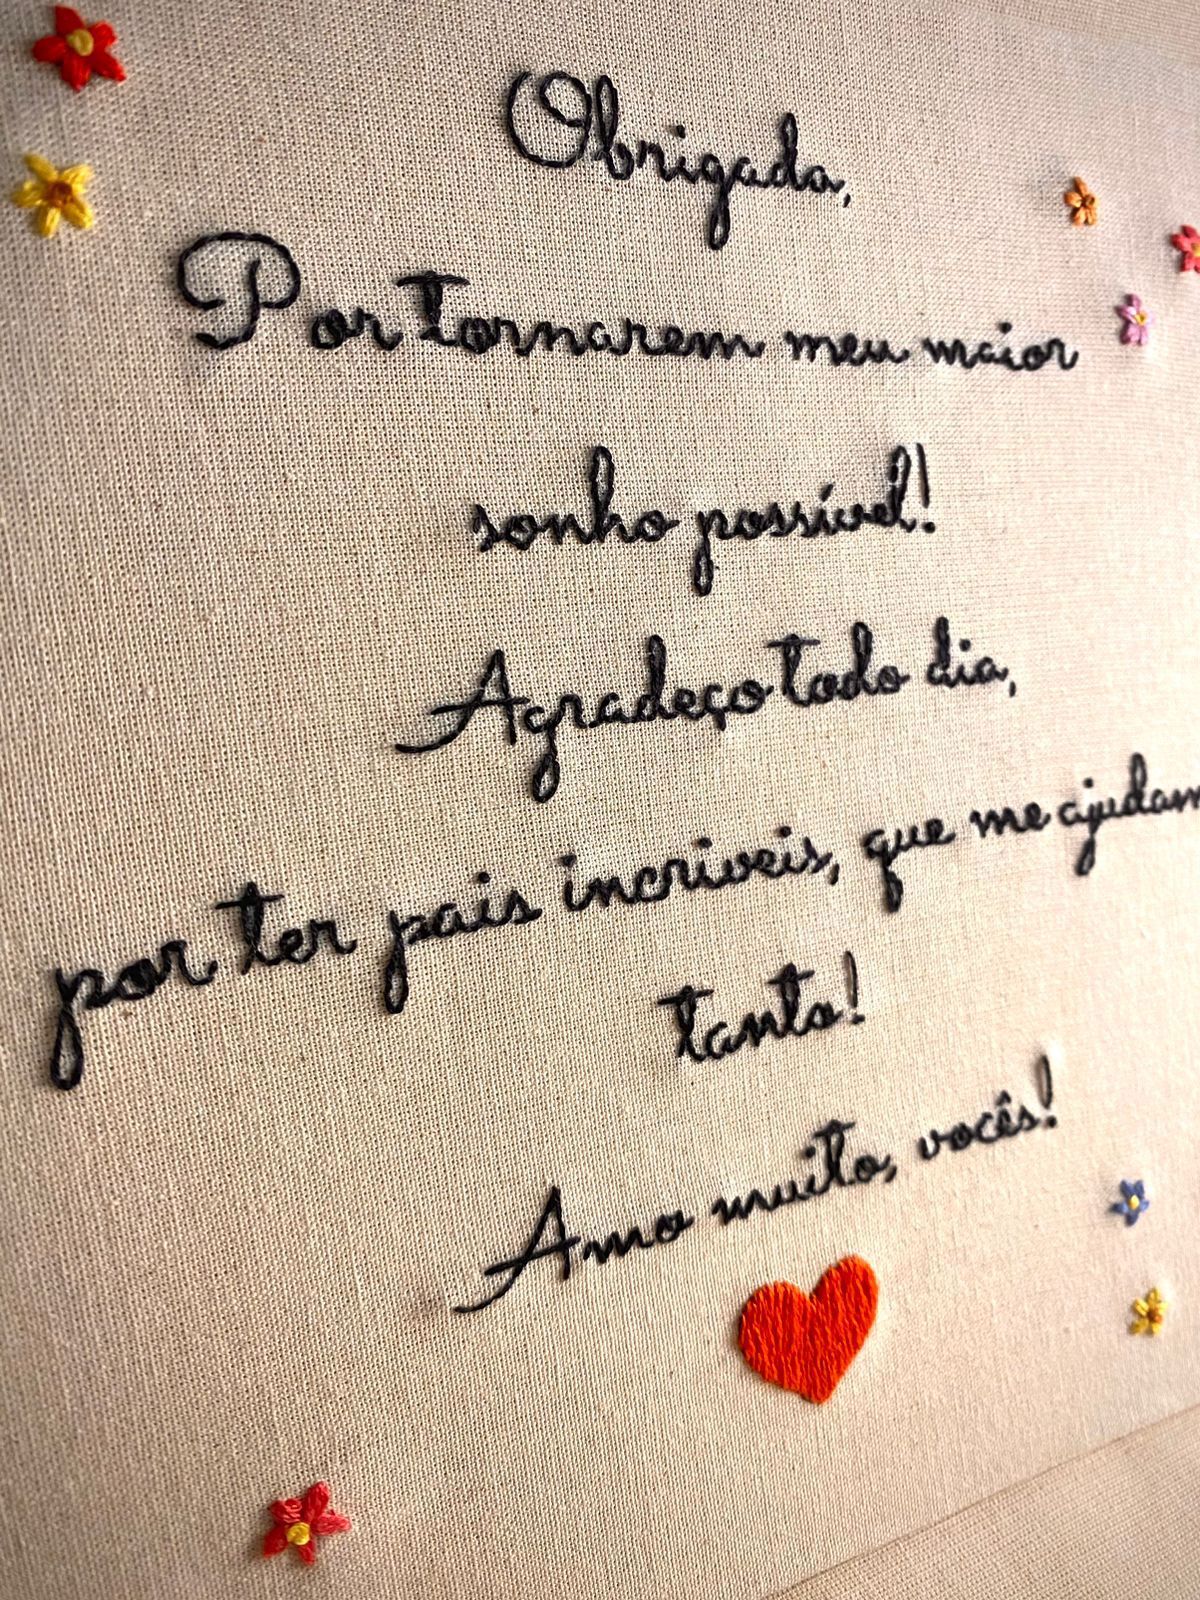 Obrigada,
Por tornarem meu maior
sonho possível!
Agradeço todo dia,
por ter pais incriveis, que me ajudam
tanto!
Amo muito, vocês!